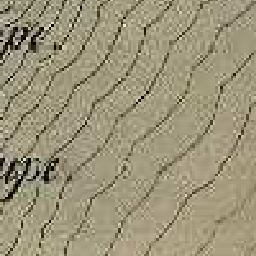 pe.
upe.